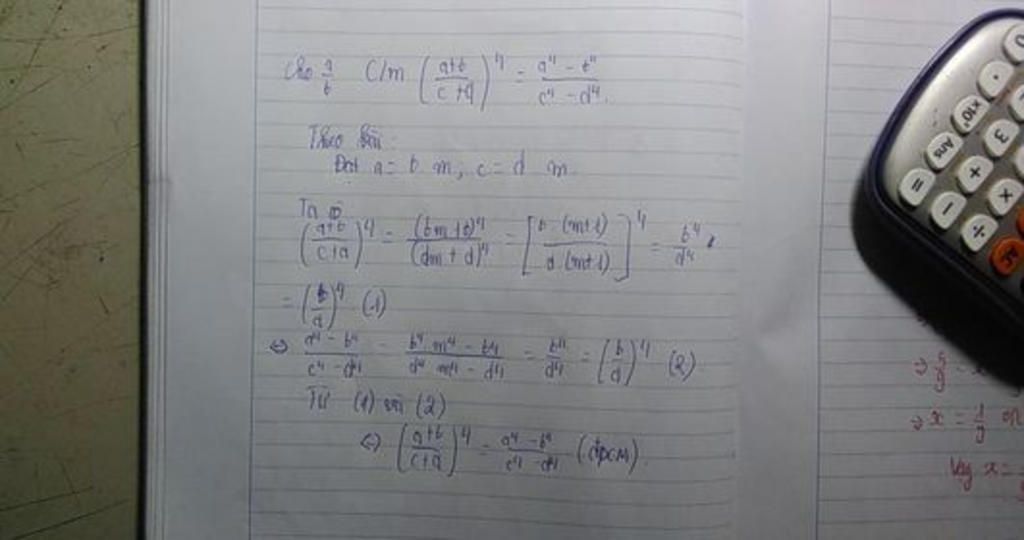 Cho a/b C/m ((a+b)/(c+d))^4 = (a^4 - b^4)/(c^4 - d^4).
Theo bài:
Đặt a = b m; c = d m.
Ta có
((a+b)/(c+d))^4 = (bm+b)^4/(dm+d)^4 = [b.(m+1)/d.(m+1)]^4 = b^4/d^4
= (b/d)^4 (1)
⇔ (a^4 - b^4)/(c^4 - d^4) = (b^4 m^4 - b^4)/(d^4 m^4 - d^4) = b^4/d^4 = (b/d)^4 (2)
Từ (1) và (2)
⇔ ((a+b)/(c+d))^4 = (a^4 - b^4)/(c^4 - d^4) (đpcm).
×10ˣ
3
Ans
+
×
=
−
÷
AC
⇒ x = 1/9
Vậy x =